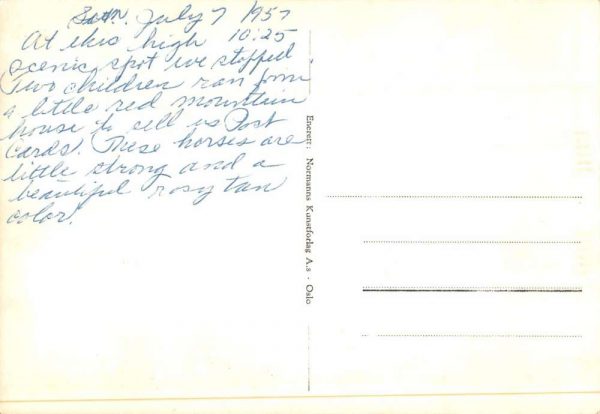 Sun. July 7 1957
At this high 10:25
scenic spot we stopped.
Two children ran from
a little red mountain
house to sell us Post
Cards. These horses are
little strong and a
beautiful rosy tan
color.
Enerett: Normanns Kunstforlag A.s - Oslo